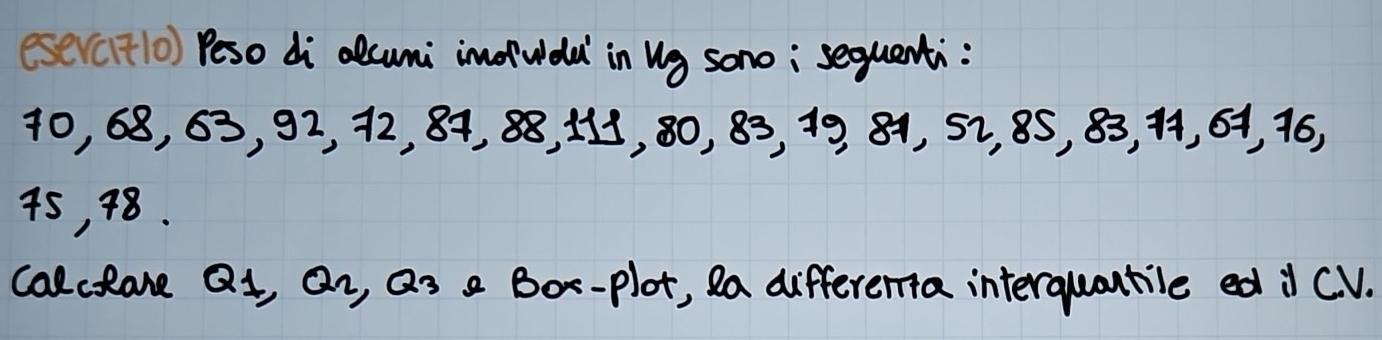 esercizio) Peso di alcuni individui in Kg sono i seguenti:
70, 68, 63, 92, 72, 87, 88, 111, 80, 83, 79, 87, 52, 85, 83, 77, 67, 76,
75, 78.
Calcolare Q1, Q2, Q3 e Box-plot, la differenza interquartile ed il C.V.